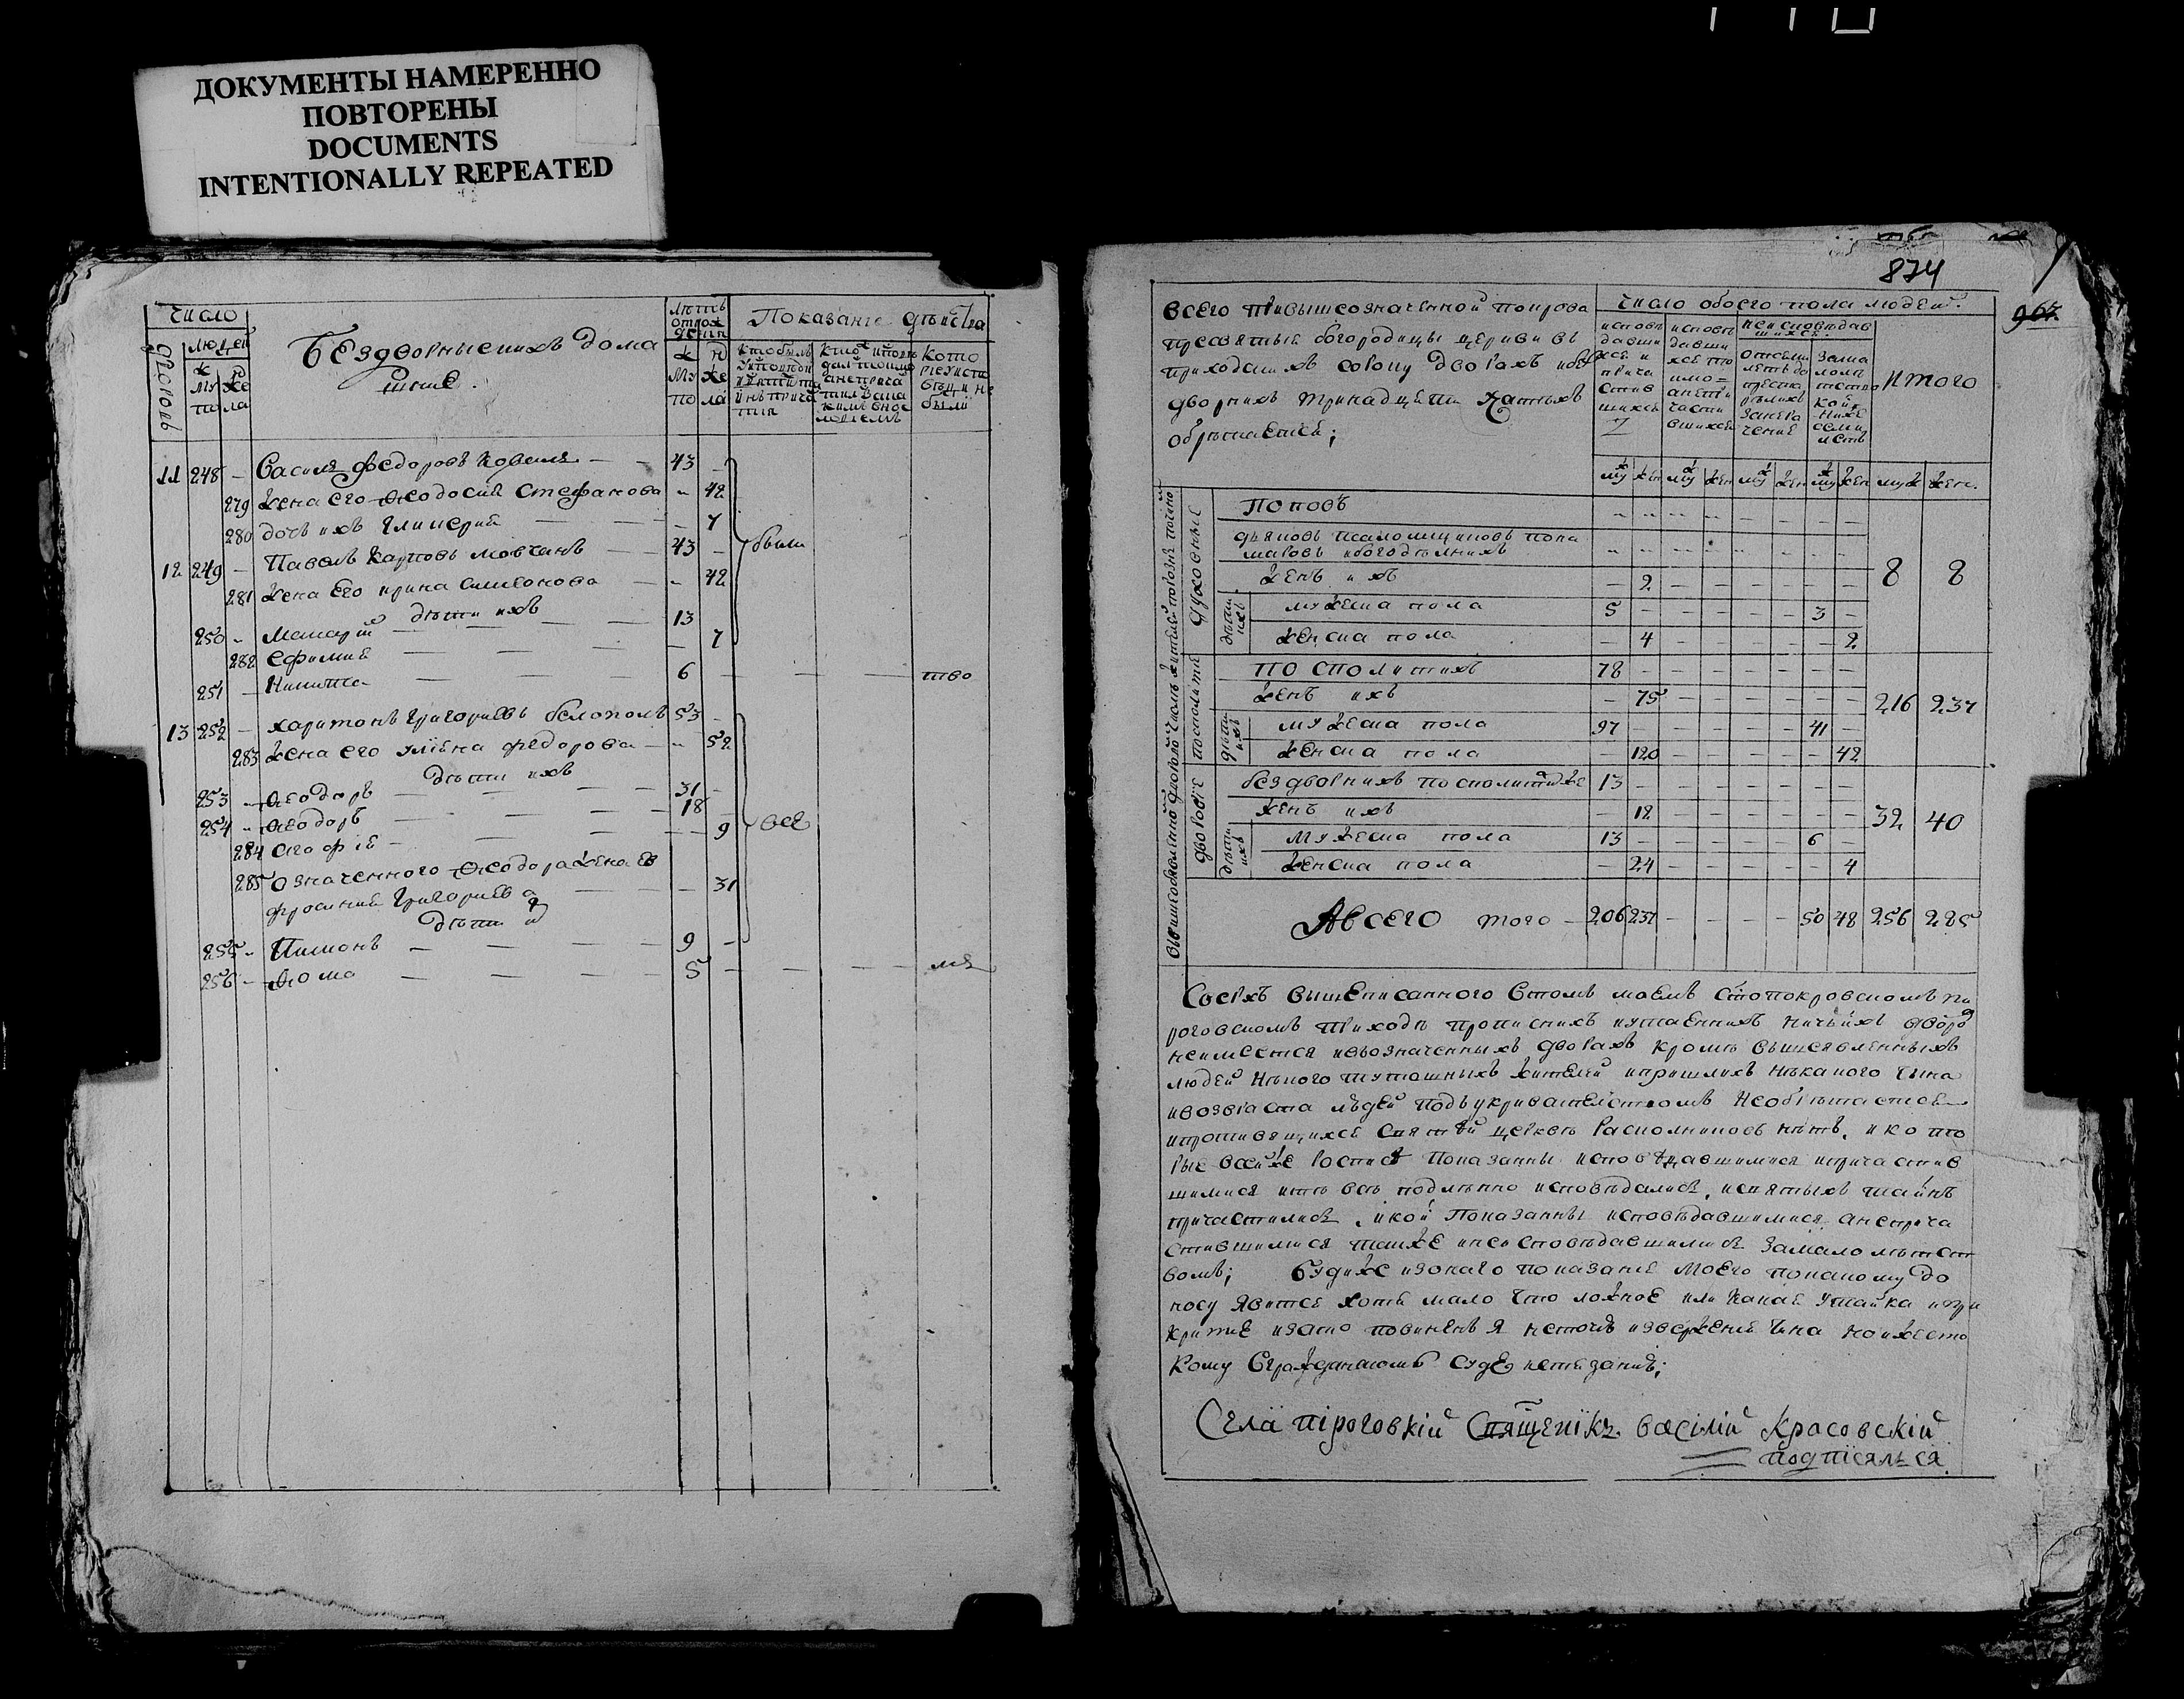 ДОКУМЕНТЫ НАМЕРЕННО
ПОВТОРЕНЫ
DOCUMENTS
INTENTIONALLY REPEATED
Число
людей
дворовъ
муж же
пола
Бездворные ихъ дома
шние
лѣтъ
от рож
дения
муж же
пола
Показание действа
кто былъ
кото
были
11 248 - Василя Федоровъ Коваля - - 43 -
279 жена его Ѳеодосия Стефанова - 42
280 дочь ихъ Гликерия - - - 7
были
12 249 - Павелъ Карповъ Мовчанъ - 43 -
281 жена его Ирина Симеонова - - 42
дѣти ихъ
250 - Макарий - - - 13
282 Ефимия - - - 7
251 - Никита - - - 6 - - - тво
13 252 - Харитонъ Григориевъ Белополъ 53 -
283 жена его Улияна Федорова - - 52
дѣти ихъ
253 - Ѳеодоръ - - - 31 -
254 - Ѳеодоръ - - - 18 -
284 Агафия - - - - 9
все
285 означенного Ѳеодора жена Ев
фросиния Григориева - - - 31
дѣти
255 - Пимонъ - - - 9 -
256 - Ѳома - - - 5 - - - мя
874
967
всего при вышеозначенной покрова
пресвятыя богородицы церкви въ
приходскихъ дворахъ и без
дворныхъ тринадцяти хатныхъ
обрѣтается;
Число обоего пола людей
исповѣ
давши
хся и
прича
стив
шихся
исповѣ
давши
хся то
кмо
а не при
части
вшихся
неисповѣдав
шихся
Итого
муж жен муж жен муж жен муж жен муж жен.
духовные
Поповъ - - - - - - - -
дяковъ псаломщиковъ пона
маровъ и богодѣлнихъ - - - - - - - -
женъ ихъ - 2 - - - - - - 8 8
дѣти ихъ
мужеска пола 5 - - - - - 3 -
женска пола - 4 - - - - - 2
посполитий
посполитихъ 78 - - - - - - -
женъ ихъ - 75 - - - - - - 216 237
дѣти ихъ
мужеска пола 97 - - - - - 41 -
женска пола - 120 - - - - - 42
бездворнихъ посполитихъ же 13 - - - - - - -
женъ ихъ - 12 - - - - - - 32 40
дѣти ихъ
мужеска пола 13 - - - - - 6 -
женска пола - 24 - - - - - 4
А всего того - 206 237 - - - - 50 48 256 285
Сверхъ вышеписанного в томъ моемъ С̃то покровскомъ пи
роговскомъ приходѣ прописнихъ и утаеннихъ ничьихъ дворо
не имеется и въ означенныхъ дворахъ кромѣ вышеявленныхъ
людей нѣкого тутошныхъ жителей и пришлихъ нѣкакого чина
и возраста людей подъ укривателствомъ не обрѣтается
и противящихся святѣй церкви расколниковъ нѣтъ, и кото
рые в сей же росписѣ показанны исповѣдавшимися и причастив
шимися и тѣ всѣ подлѣнно исповѣдалися, и святыхъ тайнъ
причастилися, и кои показанны исповѣдавшимися а не прича
стившимися также и не исповѣдавшимися за малолѣтст
вомъ; буди же из оного показания моего по какому до
носу явится хотя мало что ложное или какая утайка и при
критие и за то повиненъ я не точию извержения чина но и жесто
кому в гражданскомъ суде истязанию;
Села піроговкій Свящѣнікъ васілій Красовскій
подпісался